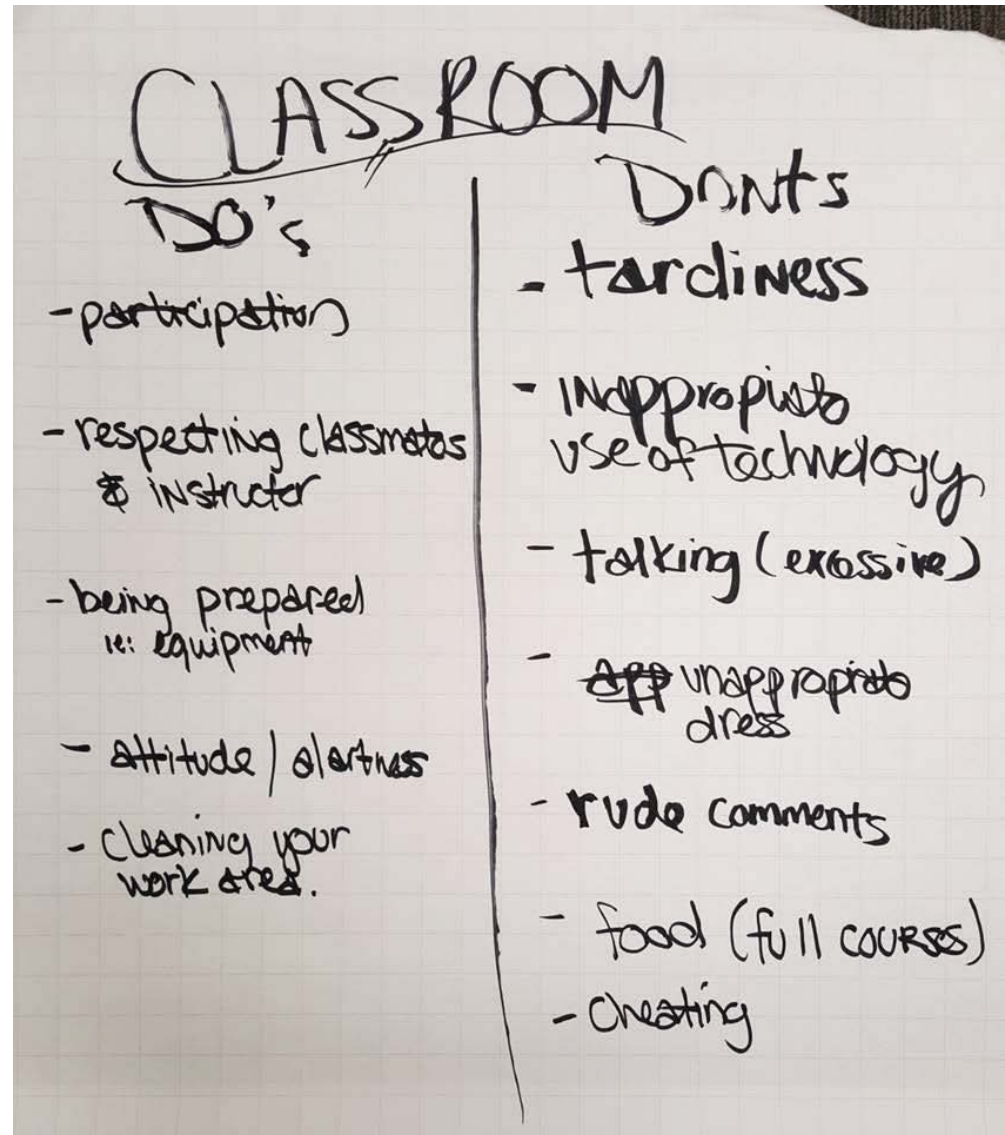 CLASSROOM
DO's
- participation
- respecting classmates
& instructor
- being prepared
ie: equipment
- attitude / alertness
- cleaning your
work area.
DONts
- tardiness
- inappropiate
use of technology
- talking (excessive)
- unappropiate
dress
- rude comments
- food (full courses)
- cheating